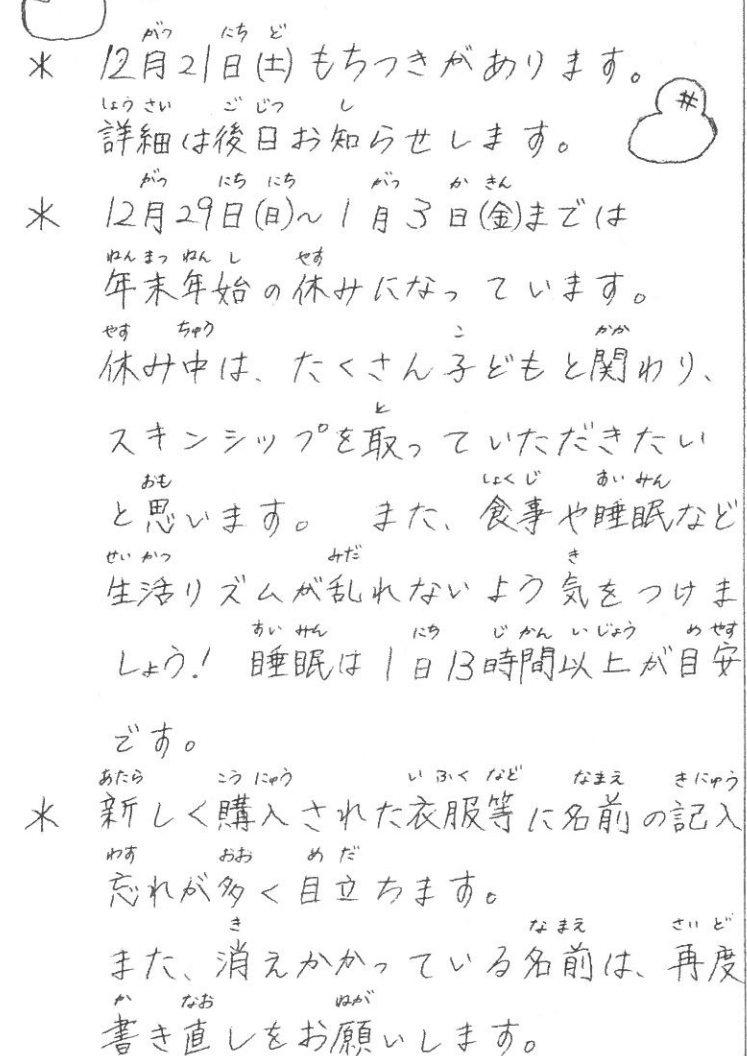 * 12月21日(土)もちつきがあります。
詳細は後日お知らせします。
* 12月29日(日)~1月3日(金)までは
年末年始の休みになっています。
休み中は、たくさん子どもと関わり、
スキンシップを取っていただきたい
と思います。 また、食事や睡眠など
生活リズムが乱れないよう気をつけま
しょう! 睡眠は1日13時間以上が目安
です。
* 新しく購入された衣服等に名前の記入
忘れが多く目立ちます。
また、消えかかっている名前は、再度
書き直しをお願いします。